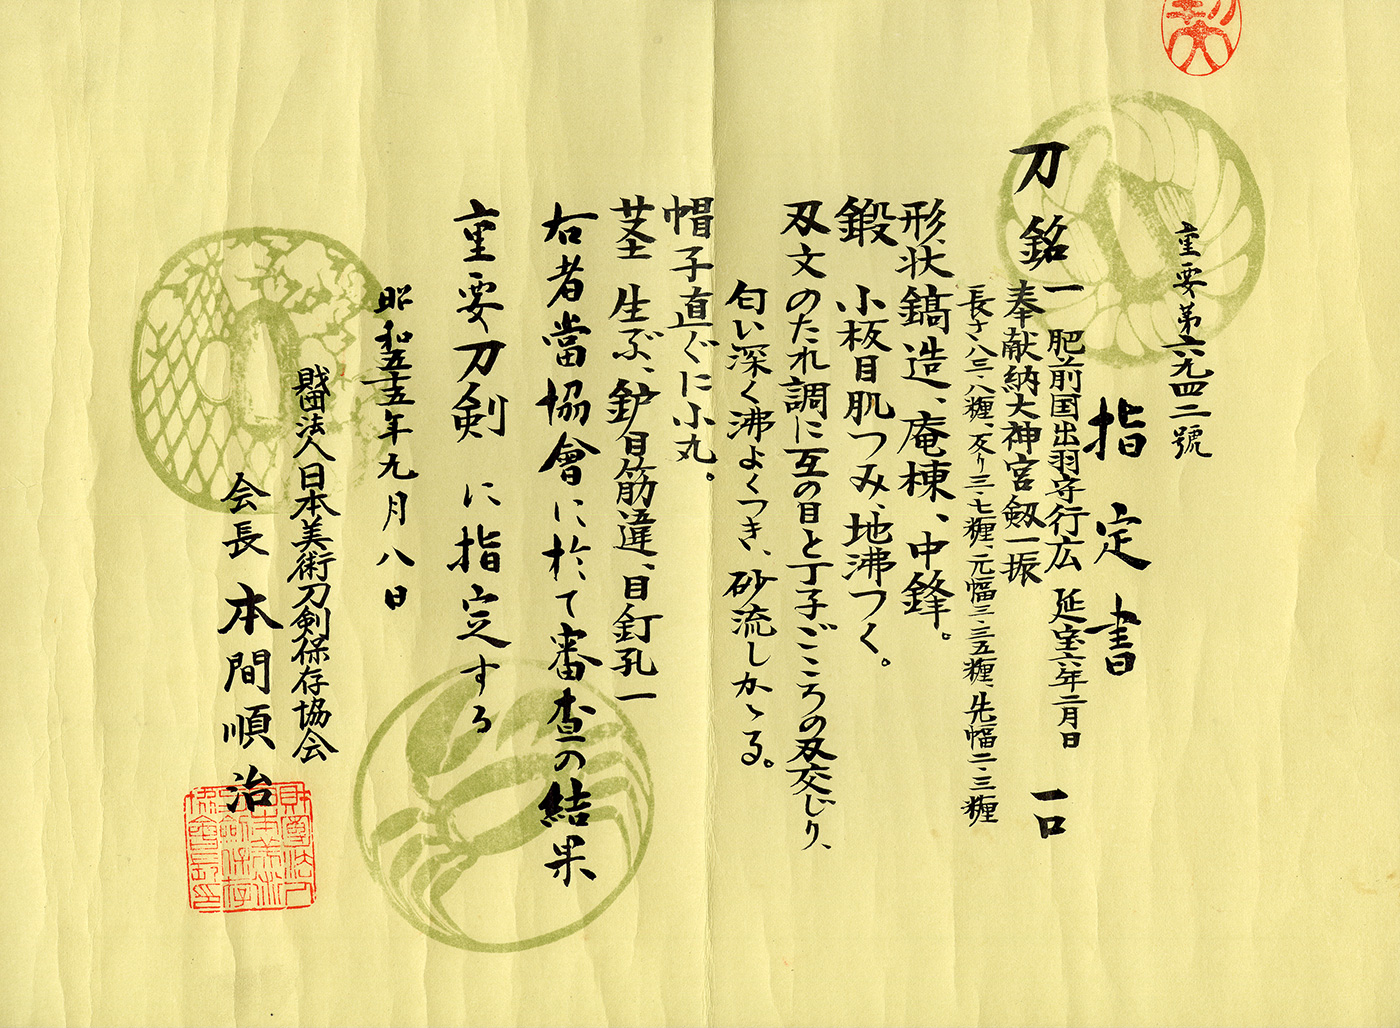 重要第六九四二號
指定書
刀 銘 一 肥前国出羽守行広 延宝六年二月日 一口
奉献納大神宮剱一振
長サ八三・八糎、反り三・七糎、元幅三・三五糎、先幅二・三糎
形状 鎬造、庵棟、中鋒。
鍛 小板目肌つみ、地沸つく。
刃文 のたれ調に互の目と丁子ごころの刃交じり、
匂い深く沸よくつき、砂流しかゝる。
帽子 直ぐに小丸。
茎 生ぶ、鈩目筋違、目釘孔一
右者當協會に於て審査の結果
重要刀剣に指定する
昭和五十五年九月八日
財団法人日本美術刀剣保存協会
会長 本間順治